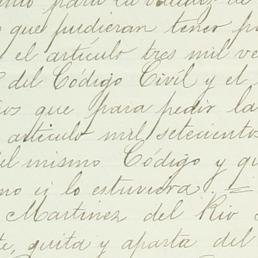 para la
que pudieran tener
el artículo tres mil
del Código Civil y el
que para pedir la
artículo mil setecientos
el mismo Código y
no si lo estuviera. =
Martinez del Rio
quita y aparta del